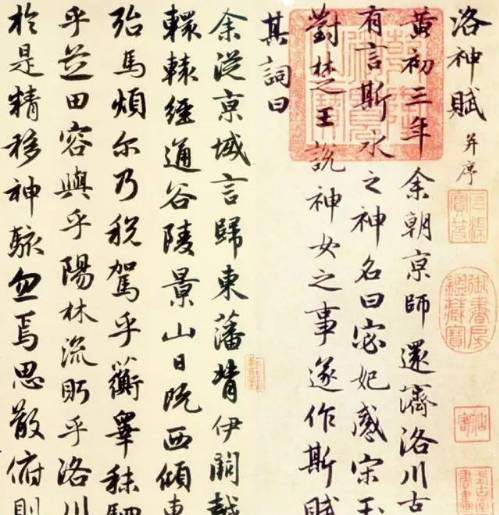 洛神賦 并序
黄初三年余朝京師還濟洛川古
有言斯水之神名曰宓妃感宋玉
對楚王說神女之事遂作斯賦
其詞曰
余從京域言歸東藩背伊闕越
轘轅經通谷陵景山日既西傾車
殆馬煩爾乃稅駕乎蘅皋秣駟
乎芝田容與乎陽林流眄乎洛川
於是精移神駭忽焉思散俯則
御書房鑑藏寶